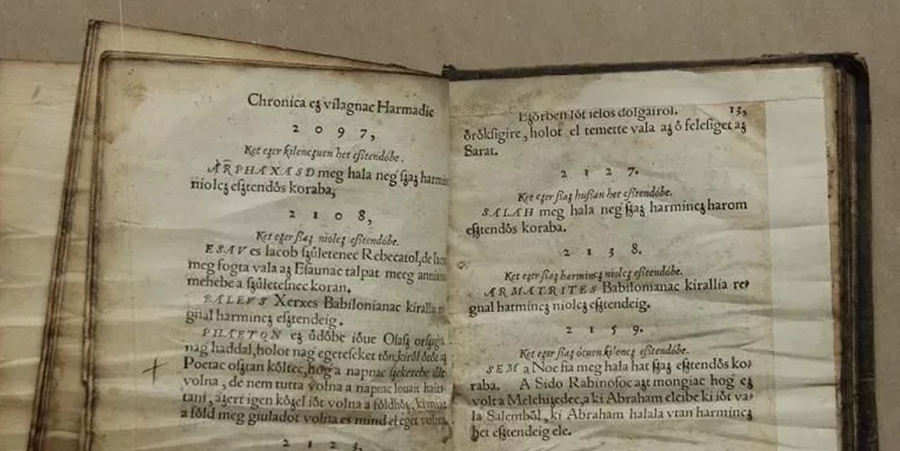 Chronica eʒ vilagnac Harmadic
2 0 9 7,
Ket eʒer kilencʒuen het eſʒtendôbe.
ARPHAXASD meg hala neg ſʒaʒ
niolcʒ eſʒtendôs koraba,
2 1 0 8,
Ket eʒer ſʒaʒ niolcʒ eſʒtendôbe.
ESAV es Iacob ſʒûletenec Rebecatol, de
meg fogta vala aʒ Eſaunac talpat meeg
mehebe a ſʒûleteſnec koran.
BALEVS Xerxes Babilonianac kirallia
gnal harmincʒ eſʒtendeig.
PHAETON eʒ ûdôbe iôue Olaſʒ
nag haddal, holot nag egeteſeket tôn,
Poetac oſʒtan kôltec, hog a napnac ſʒekerebe ûlt
volna, de nem tutta volna a napnac louait
tani, aʒert igen kôʒel iôt volna a fôldhôʒ,
a fôld meg giuladot volna es mind el eget volna
2 1 2 3,
Eʒôrben lôt ielos dolgairol. 13,
ôrôkſigire, holot el temette vala aʒ ô feleſiget aʒ
Sarat.
2 1 2 7.
Ket eʒer ſʒaʒ huſʒan het eſʒtendôbe.
SALAH meg hala neg ſʒaʒ harmincʒ harom
eſʒtendôs koraba.
2 1 3 8.
Ket eʒer ſʒaʒ harmincʒ niolcʒ eſʒtendôbe.
ARMATRITES Babilonianac kirallia re⸗
gnal harmincʒ niolcʒ eſʒtendeig.
2 1 5 9.
Ket eʒer ſʒaʒ ôtuen kilencʒ eſʒtendôbe.
SEM a Noe fia meg hala hat ſʒaʒ eſʒtendôs ko⸗
raba. A Sido Rabinoſoc aʒt mongiac hog eʒ
volt a Melchiʒedec, a ki Abraham eleibe ki iôt va⸗
la Salembôl, ki Abraham halala vtan harmincʒ
het eſʒtendeig ele.